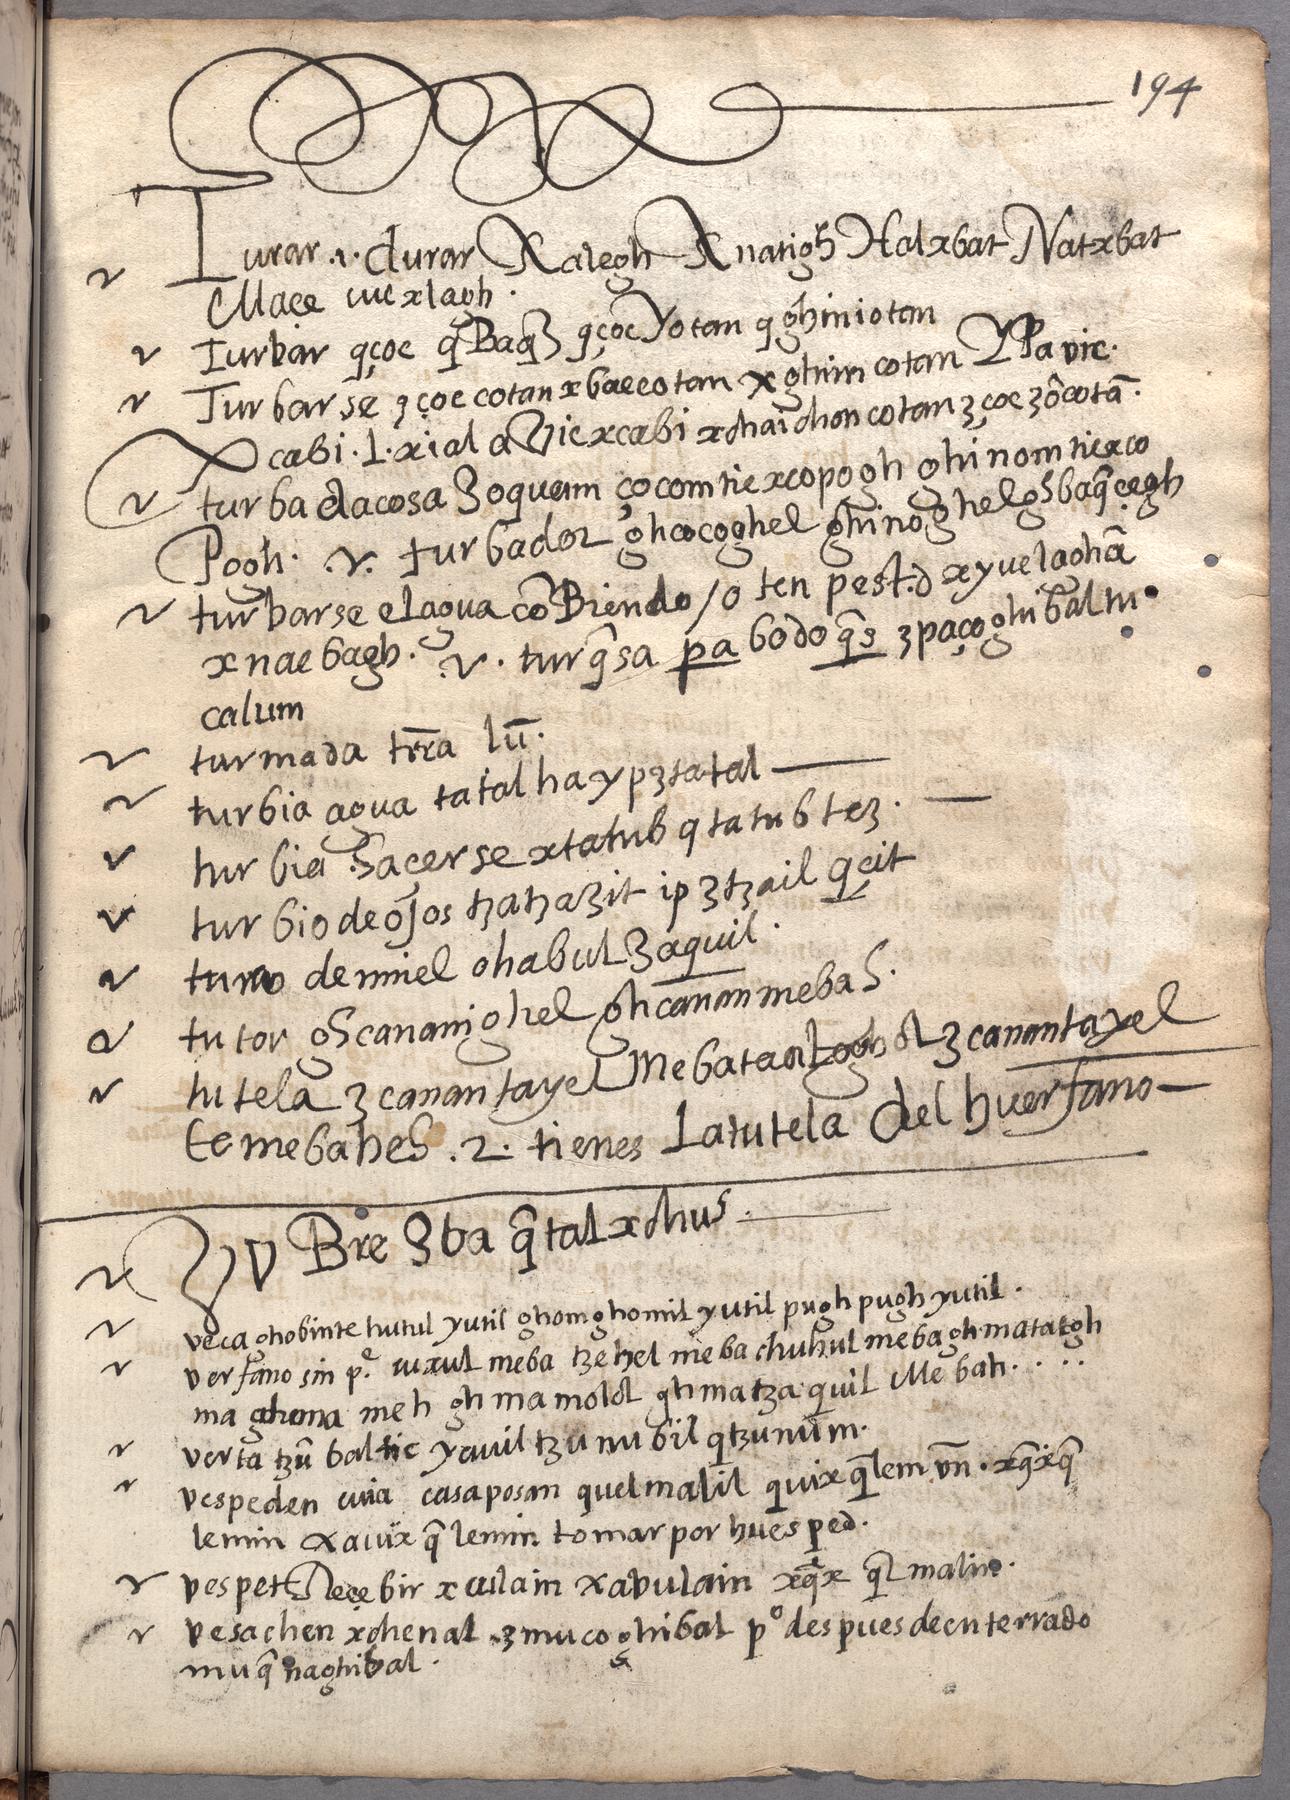 194
Turar .1. durar Xalegh Xnatigh Halxbat Natxbat
Mace vuexlagh.
Turbar qçoc q̃ Baq̃З qçoc Yotan q ghiniotan
Turbarse qçoc cotan xbaecotan xghini cotan YPa vic.
Xcabi .1. xial a Vic xcabi xchaichon cotan з çoc зõcotã.
turbada cosa Зoquem çocom tic xcopogh ghinom tic xco
Pogh. v. turbador ghcocoghel ghinoghel gh baq̃ çegh
turbarse el agua cõ Biendo / o ten pest.d xyuelaghã
xnaebagh. v. turq̃sa pa bodoq̃s з paçoghibal tu
calum
turmada trr̃a lũ.
turbia agua tatal hay pзtatal
turbia hacerse xtatub q tatubteз.
turbio de ojos tzatzaзit ip зtзail qçit
turro de miel ohabul Зaquil.
tutor gh cananighel ghcanan mebah.
tutela з canantayel Mebatan ol з canantayel
te mebaheh .2. tienes La tutela del huerfano
VV Bre Зba q̃tal xchus.
veca ghobinte hutul yutil ghomghomil yutil pugh pugh yutil.
verfano sin p.e vixul meba tzehel meba chuhul meba gh matatgh
ma ghuna meh gh ma molol gh matza quil Me bah. . ..
verta tзũ baltic yavil tзunubil q tзunum.
vespeden cuia casa posan quelmalil quix q̃lem vñ. xq̃ixq̃
lemin xavix q̃lemin tomar por huesped.
vespet Reçebir x culain xavulain xq̃x q̃lmalin.
vesa chen xchenal .з mucoghibal p.o despues de enterrado
muq̃naghibal.